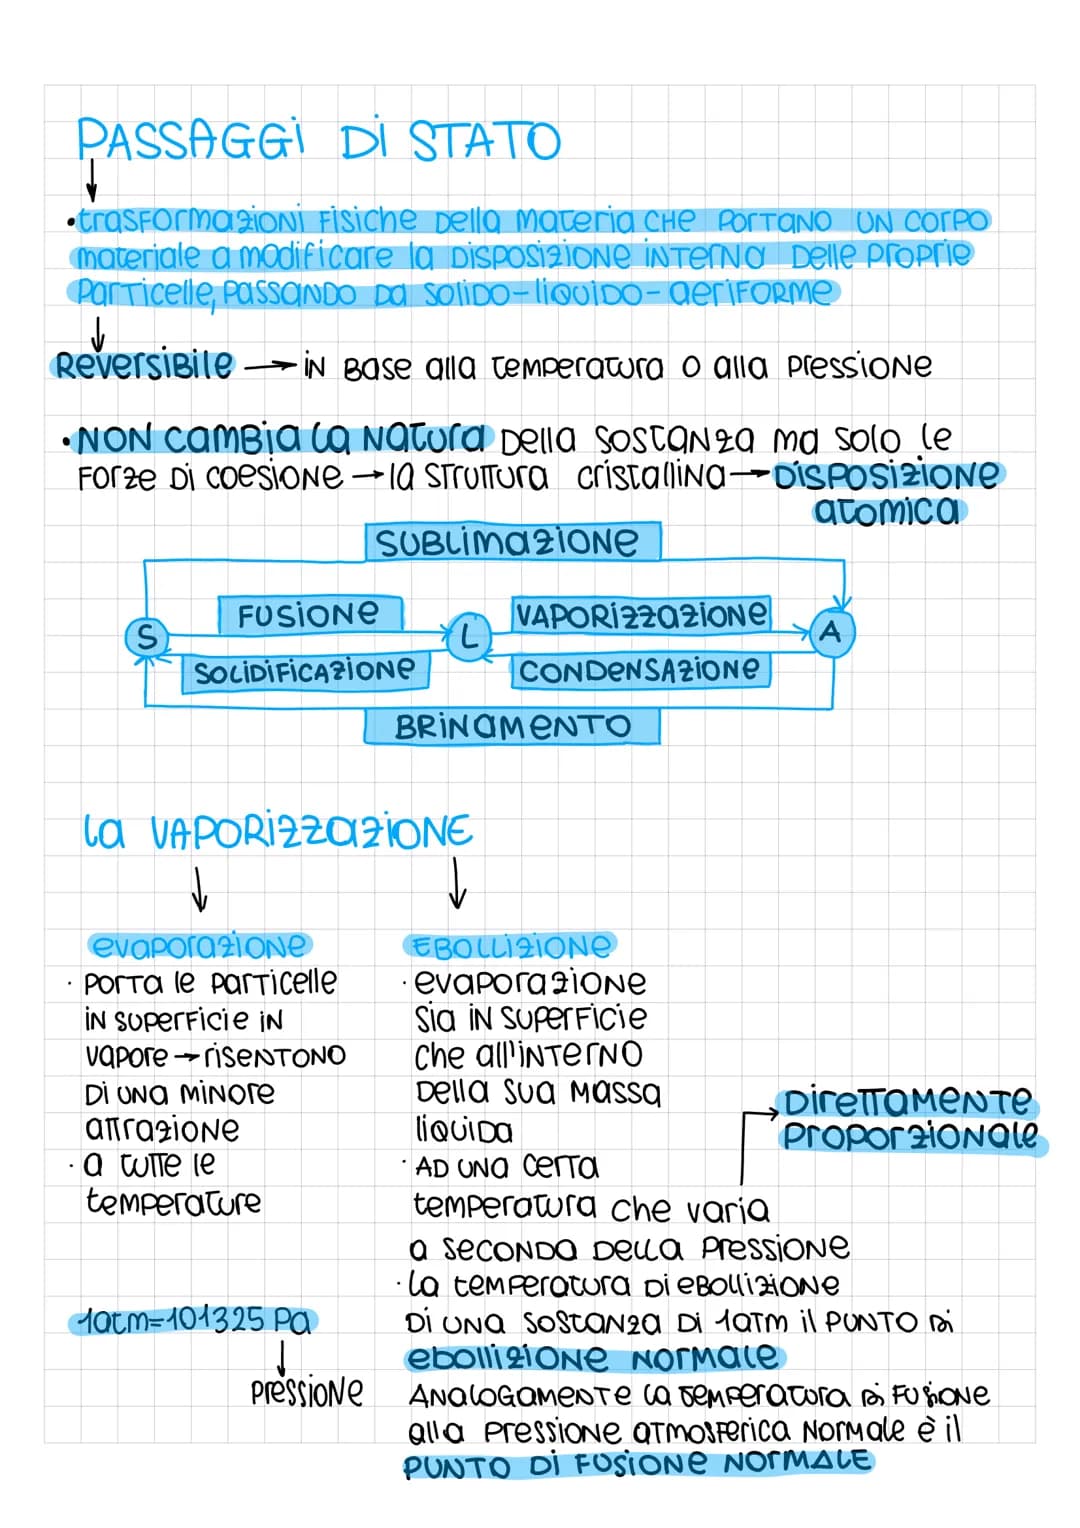 PASSAGGI DI STATO
•trasformazioni fisiche della materia che portano un corpo
materiale a modificare la disposizione interna delle proprie
particelle, passando da solido-liquido-aeriforme
Reversibile → in base alla temperatura o alla pressione
•NON cambia la natura della sostanza ma solo le
forze di coesione → la struttura cristallina → disposizione
atomica
SUBLIMAZIONE
FUSIONE
VAPORIZZAZIONE
S
L
A
SOLIDIFICAZIONE
CONDENSAZIONE
BRINAMENTO
la VAPORIZZAZIONE
evaporazione
· porta le particelle
in superficie in
vapore → risentono
di una minore
attrazione
· a tutte le
temperature
1atm=101325 Pa
pressione
EBOLLIZIONE
· evaporazione
sia in superficie
che all'interno
della sua massa
liquida
· AD una certa
temperatura che varia
a seconda della pressione
Direttamente
proporzionale
· la temperatura di ebollizione
di una sostanza di 1atm il punto di
ebollizione normale
Analogamente la temperatura di fusione
alla pressione atmosferica normale è il
PUNTO DI FUSIONE NORMALE